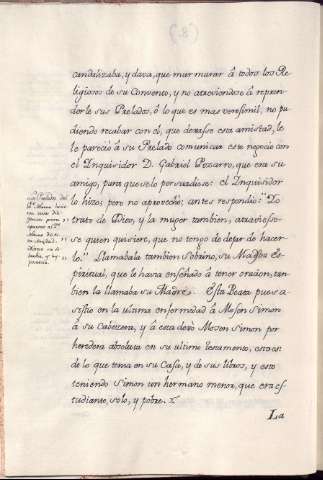 (8.)
candalizaba, y dava, que murmurar â todos los Re-
ligiosos de su Convento, y no atreviendose â repren-
dorle sus Prelados, ô lo que es mas verosimil, no pu-
diendo recabar con èl, que dexasse esta amistad, le
le pareciò â su Prelado comunicar este negocio con
el Inquisidor D. Gabriel Pozarro, que era su
amigo, para que selo persuadiese: el Inquisidor
lo hizo; pero no aprovechò; antes respondiò: Yo
trato de Dios, y la muger tambien, atraviesse-
se quien quisiere, que no tengo de dejar de hacer-
lo." Llamabala tambien Sobrino, su Madre Es-
piritual, que le havia enseñado â tener oracion, tam-
bien la llamaba su Madre. Esta Beata pues a-
sistio en la ultima enfermedad â Mosen Simon
â su Cabezera, y â esta dexò Mosen Simon por
heredera absoluta en su ultimo testamento, esto es
de lo que tenia en su Casa, y de sus libros, y esto
teniendo Simon un hermano menor, que era es-
tudiante, solo, y pobre.
La